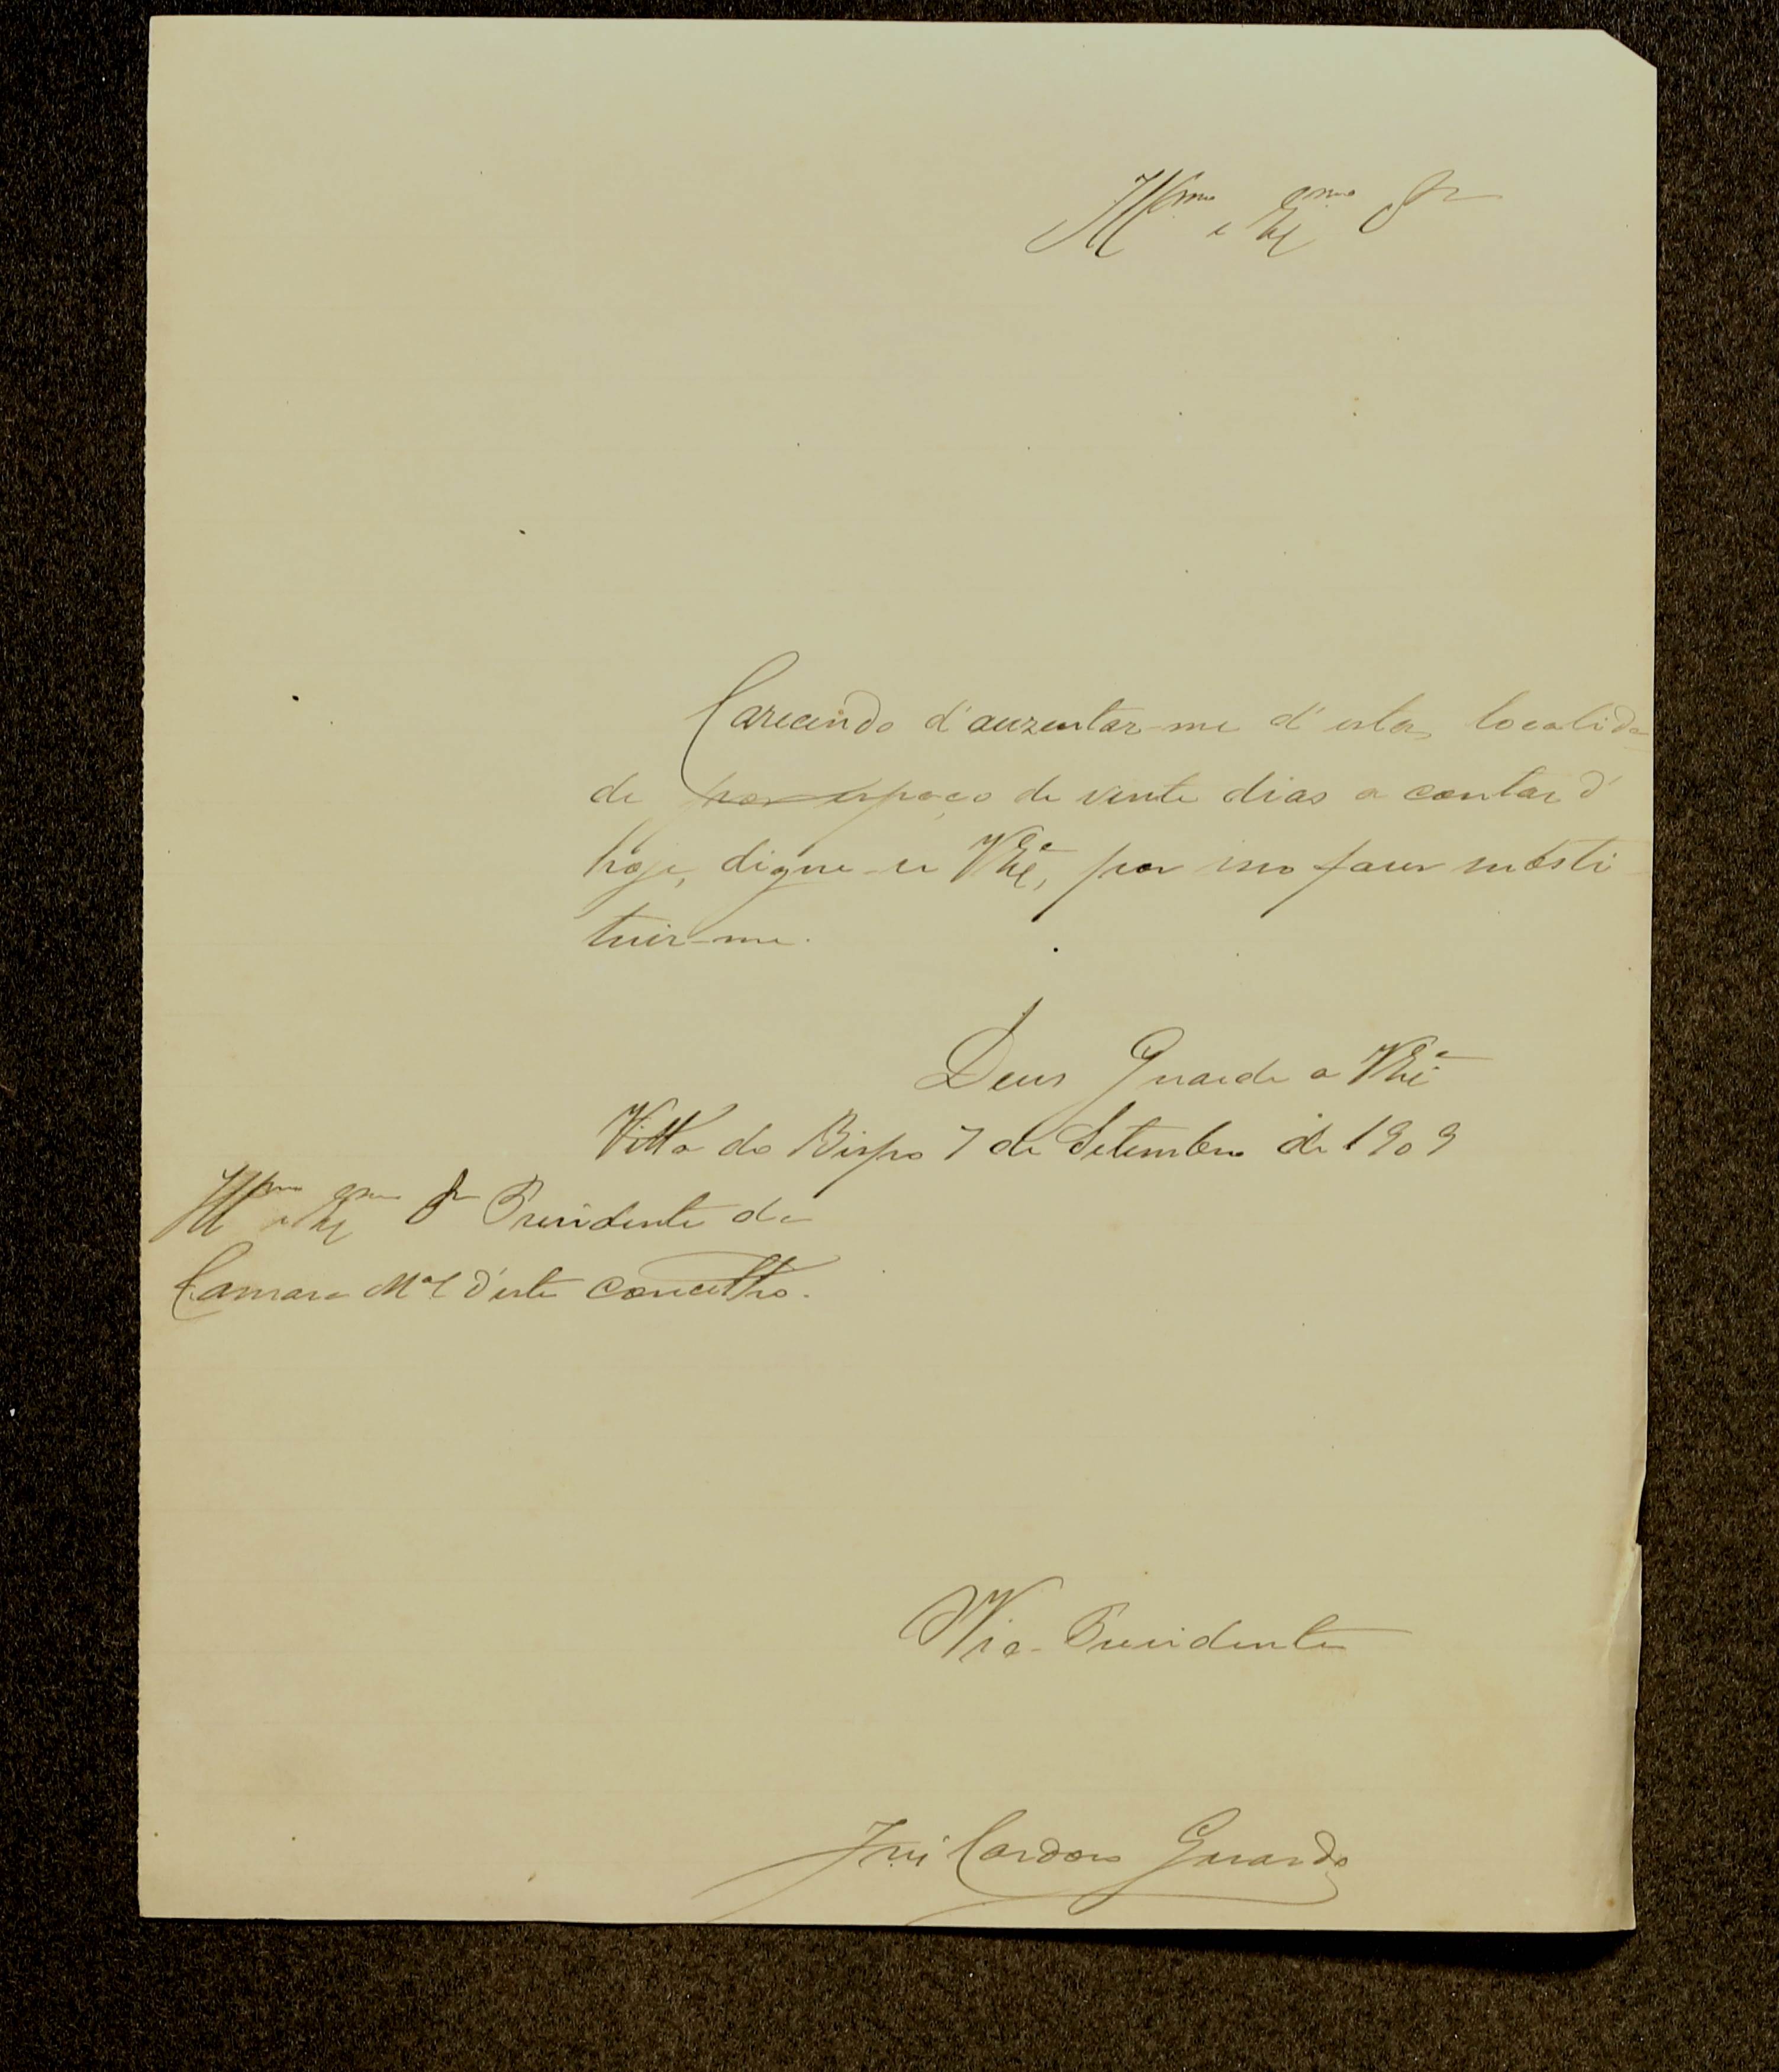 Illmo e Exmo Sr
Carecendo d'auzentar-me d'esta localida
de por espaço de vinte dias a contar d'
hoje, digne-se V Exa, por isso fazer substi
tuir-me.
Deus Guarde a V Exa
Villa do Bispo 7 de Setembro de 1909
Illmo e Exmo Sr Presidente da
Camara Mal d'este concelho.
O Vice-Presidente
José Cardoso